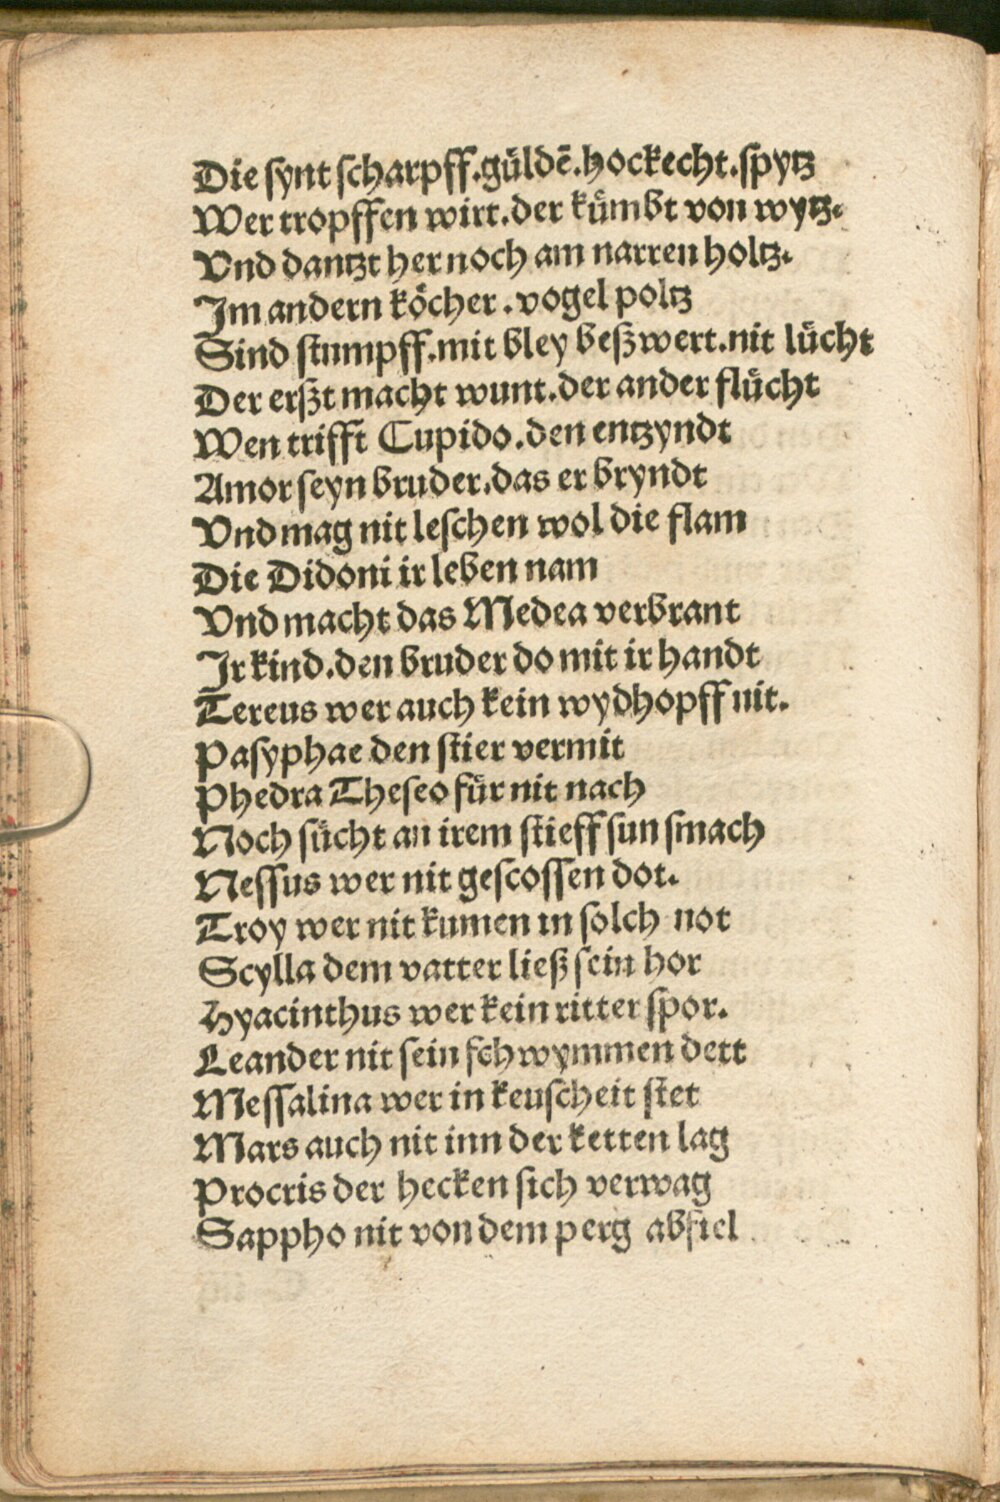 Die synt scharpff.gůldē.hockecht.spytz
Wer tropffen wirt.der kümbt von wytz.
Vnd dantzt hernoch am narren holtz.
Jm andern köcher.vogel poltz
Sind stumpff.mit bley beßwert.nit lücht
Der erßt macht wunt.der ander flücht
Wen trifft Cupido.den entzyndt
Amor seyn bruder.das er bryndt
Vnd mag nit leschen wol die flam
Die Didoni ir leben nam
Vnd macht das Medea verbrant
Jr kind.den bruder do mit ir handt
Tereus wer auch kein wydhopff nit.
Pasyphae den stier vermit
Phedra Theseo für nit nach
Noch sücht an irem stieff sun smach
Nessus wer nit gescossen dot.
Troy wer nit kumen in solch not
Scylla dem vatter ließ sein hor
Hyacinthus wer kein ritter spor.
Leander nit sein schwymmen dett
Messalina wer in keuscheit stet
Mars auch nit inn der ketten lag
Procris der hecken sich verwag
Sappho nit von dem perg abfiel